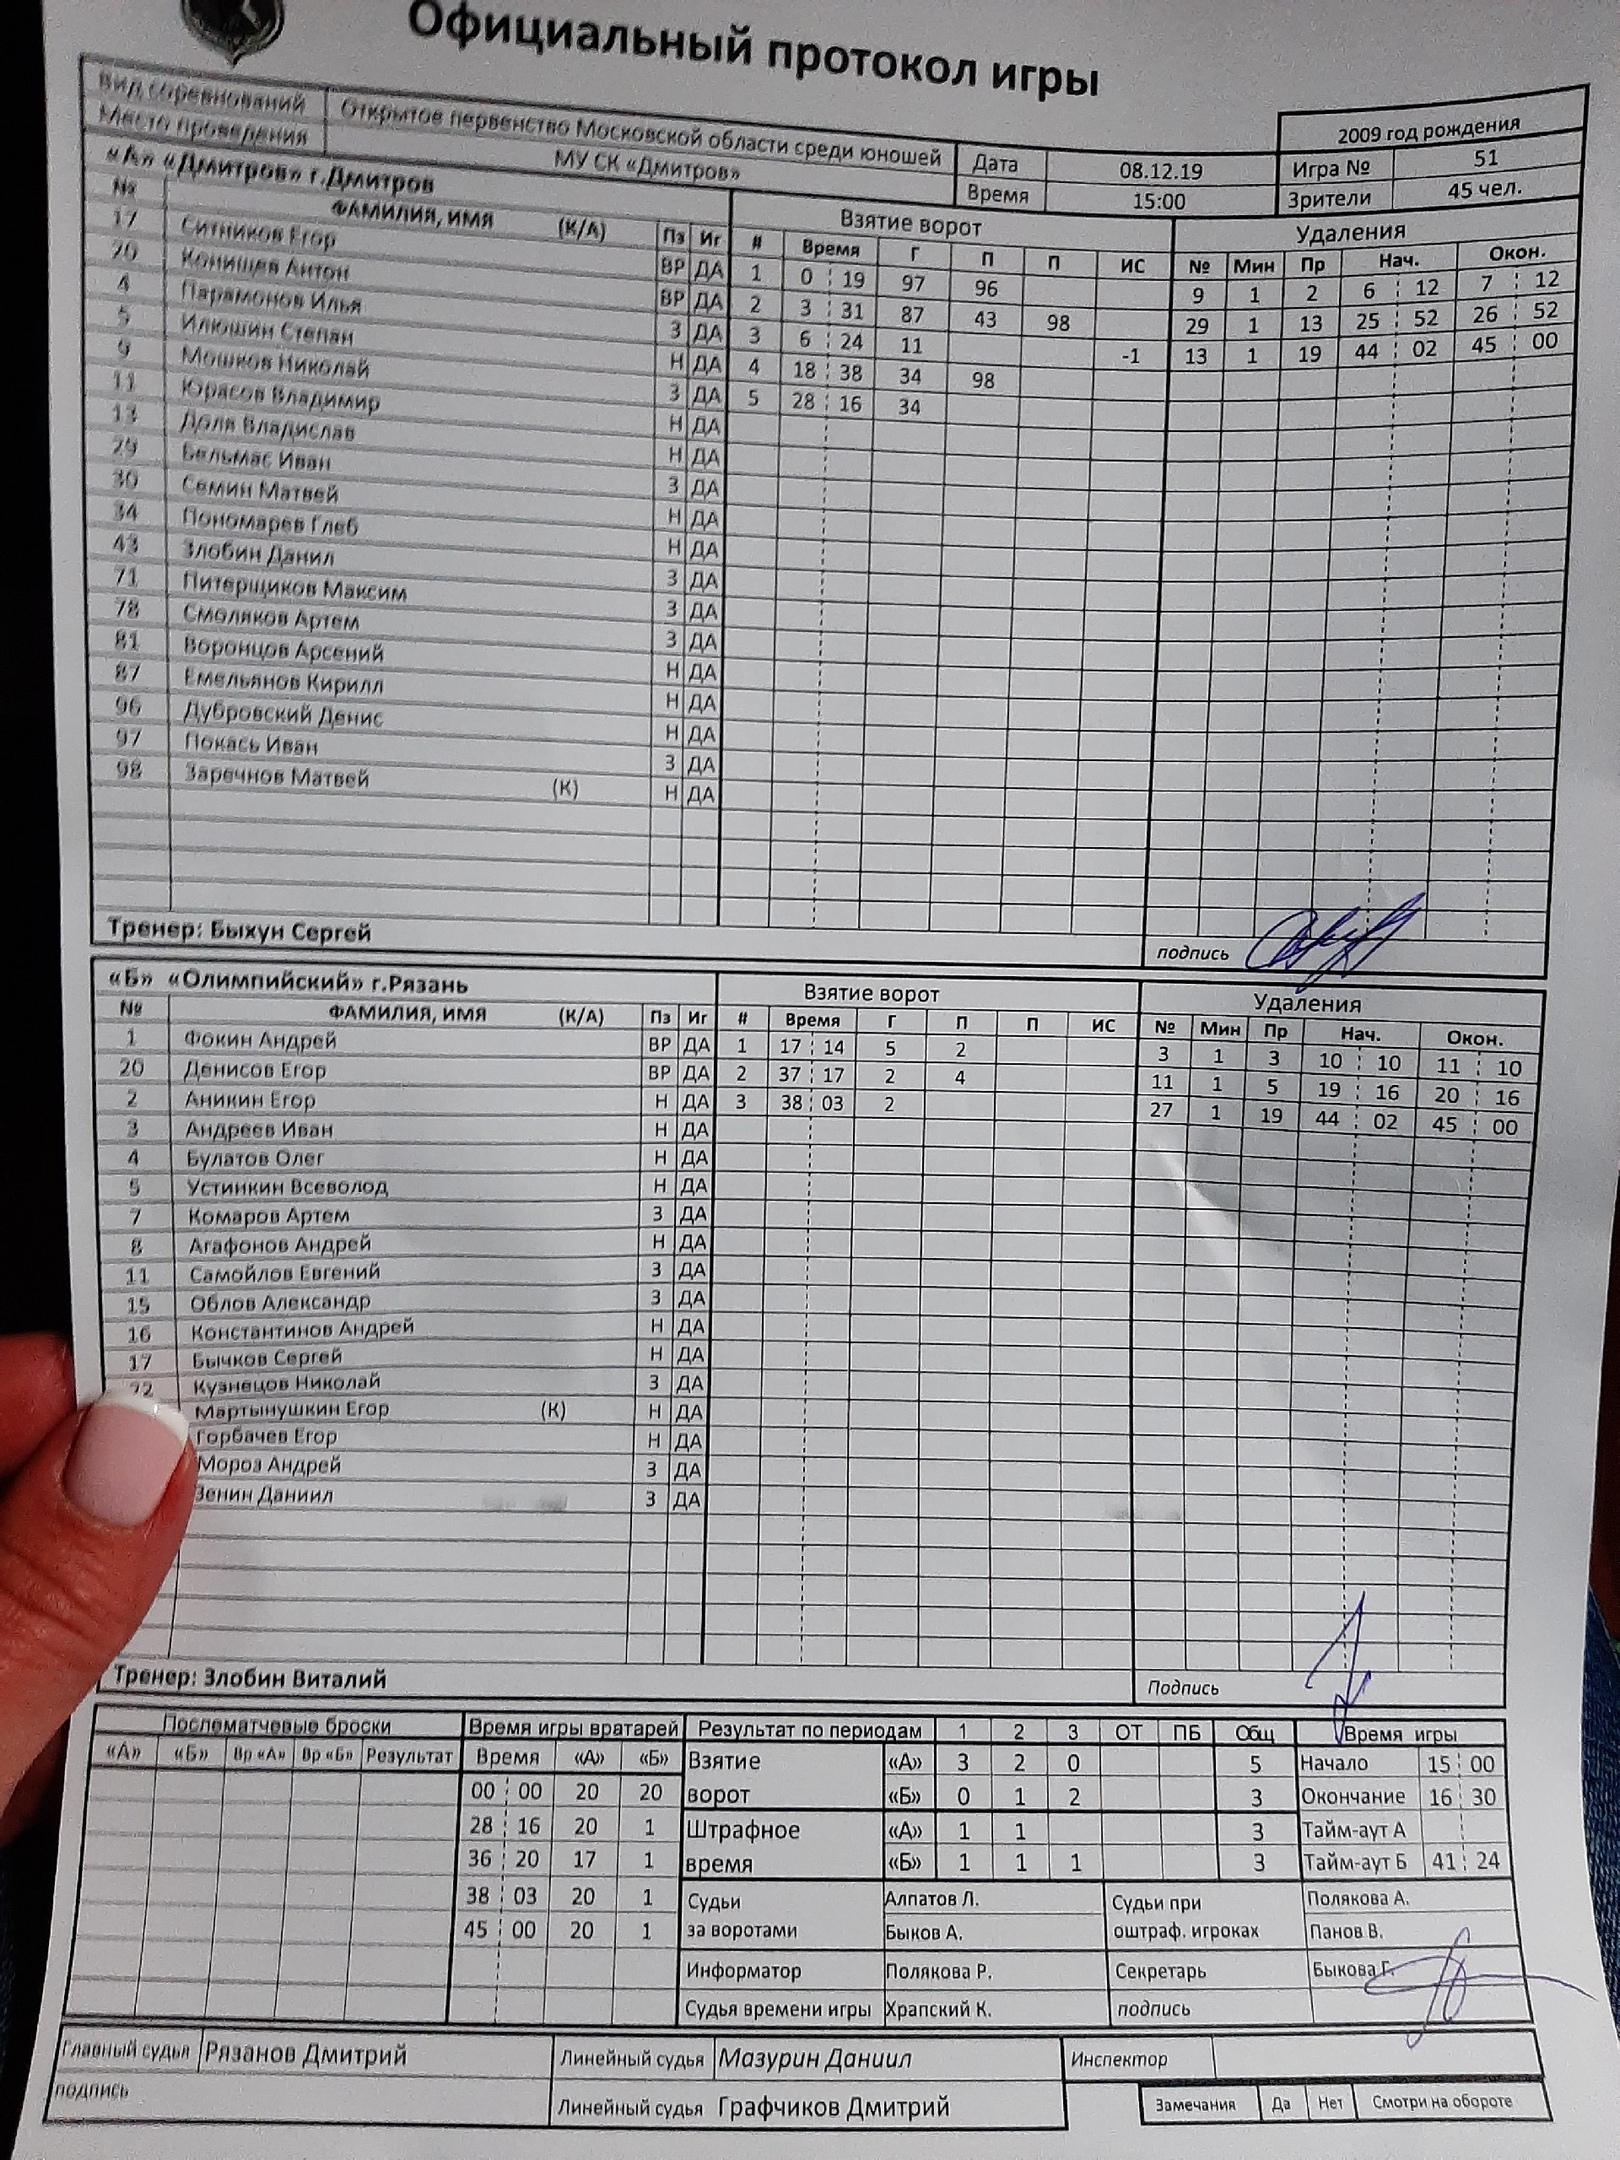 Официальный протокол игры
2009 год рождения
Вид соревнований Открытое первенство Московской области среди юношей Дата 08.12.19 Игра № 51
Место проведения МУ СК «Дмитров» Время 15:00 Зрители 45 чел.
«А» «Дмитров» г.Дмитров Взятие ворот Удаления
№ ФАМИЛИЯ, ИМЯ (К/А) Пз Иг # Время Г П П ИС № Мин Пр Нач. Окон.
17 Ситников Егор ВР ДА 1 0 19 97 96 9 1 2 6 12 7 12
20 Конищев Антон ВР ДА 2 3 31 87 43 98 29 1 13 25 52 26 52
4 Парамонов Илья З ДА 3 6 24 11 -1 13 1 19 44 02 45 00
5 Илюшин Степан Н ДА 4 18 38 34 98
9 Мошков Николай З ДА 5 28 16 34
11 Юрасов Владимир Н ДА
13 Доля Владислав Н ДА
29 Бельмас Иван З ДА
30 Семин Матвей Н ДА
34 Пономарев Глеб Н ДА
43 Злобин Данил З ДА
71 Питерщиков Максим З ДА
78 Смоляков Артем З ДА
81 Воронцов Арсений Н ДА
87 Емельянов Кирилл Н ДА
96 Дубровский Денис Н ДА
97 Покась Иван З ДА
98 Заречнов Матвей (К) Н ДА
Тренер: Быхун Сергей подпись
«Б» «Олимпийский» г.Рязань Взятие ворот Удаления
№ ФАМИЛИЯ, ИМЯ (К/А) Пз Иг # Время Г П П ИС № Мин Пр Нач. Окон.
1 Фокин Андрей ВР ДА 1 17 14 5 2 3 1 3 10 10 11 10
20 Денисов Егор ВР ДА 2 37 17 2 4 11 1 5 19 16 20 16
2 Аникин Егор Н ДА 3 38 03 2 27 1 19 44 02 45 00
3 Андреев Иван Н ДА
4 Булатов Олег Н ДА
5 Устинкин Всеволод Н ДА
7 Комаров Артем З ДА
8 Агафонов Андрей Н ДА
11 Самойлов Евгений З ДА
15 Облов Александр З ДА
16 Константинов Андрей Н ДА
17 Бычков Сергей Н ДА
22 Кузнецов Николай З ДА
Мартынушкин Егор (К) Н ДА
Горбачев Егор Н ДА
Мороз Андрей З ДА
Зенин Даниил З ДА
Тренер: Злобин Виталий Подпись
Послематчевые броски Время игры вратарей Результат по периодам 1 2 3 ОТ ПБ Общ Время игры
«А» «Б» Вр «А» Вр «Б» Результат Время «А» «Б» Взятие «А» 3 2 0 5 Начало 15 00
00 00 20 20 ворот «Б» 0 1 2 3 Окончание 16 30
28 16 20 1 Штрафное «А» 1 1 3 Тайм-аут А
36 20 17 1 время «Б» 1 1 1 3 Тайм-аут Б 41 24
38 03 20 1 Судьи Алпатов Л. Судьи при Полякова А.
45 00 20 1 за воротами Быков А. оштраф. игроках Панов В.
Информатор Полякова Р. Секретарь Быкова Г.
Судья времени игры Храпский К. подпись
Главный судья Рязанов Дмитрий Линейный судья Мазурин Даниил Инспектор
подпись Линейный судья Графчиков Дмитрий Замечания Да Нет Смотри на обороте